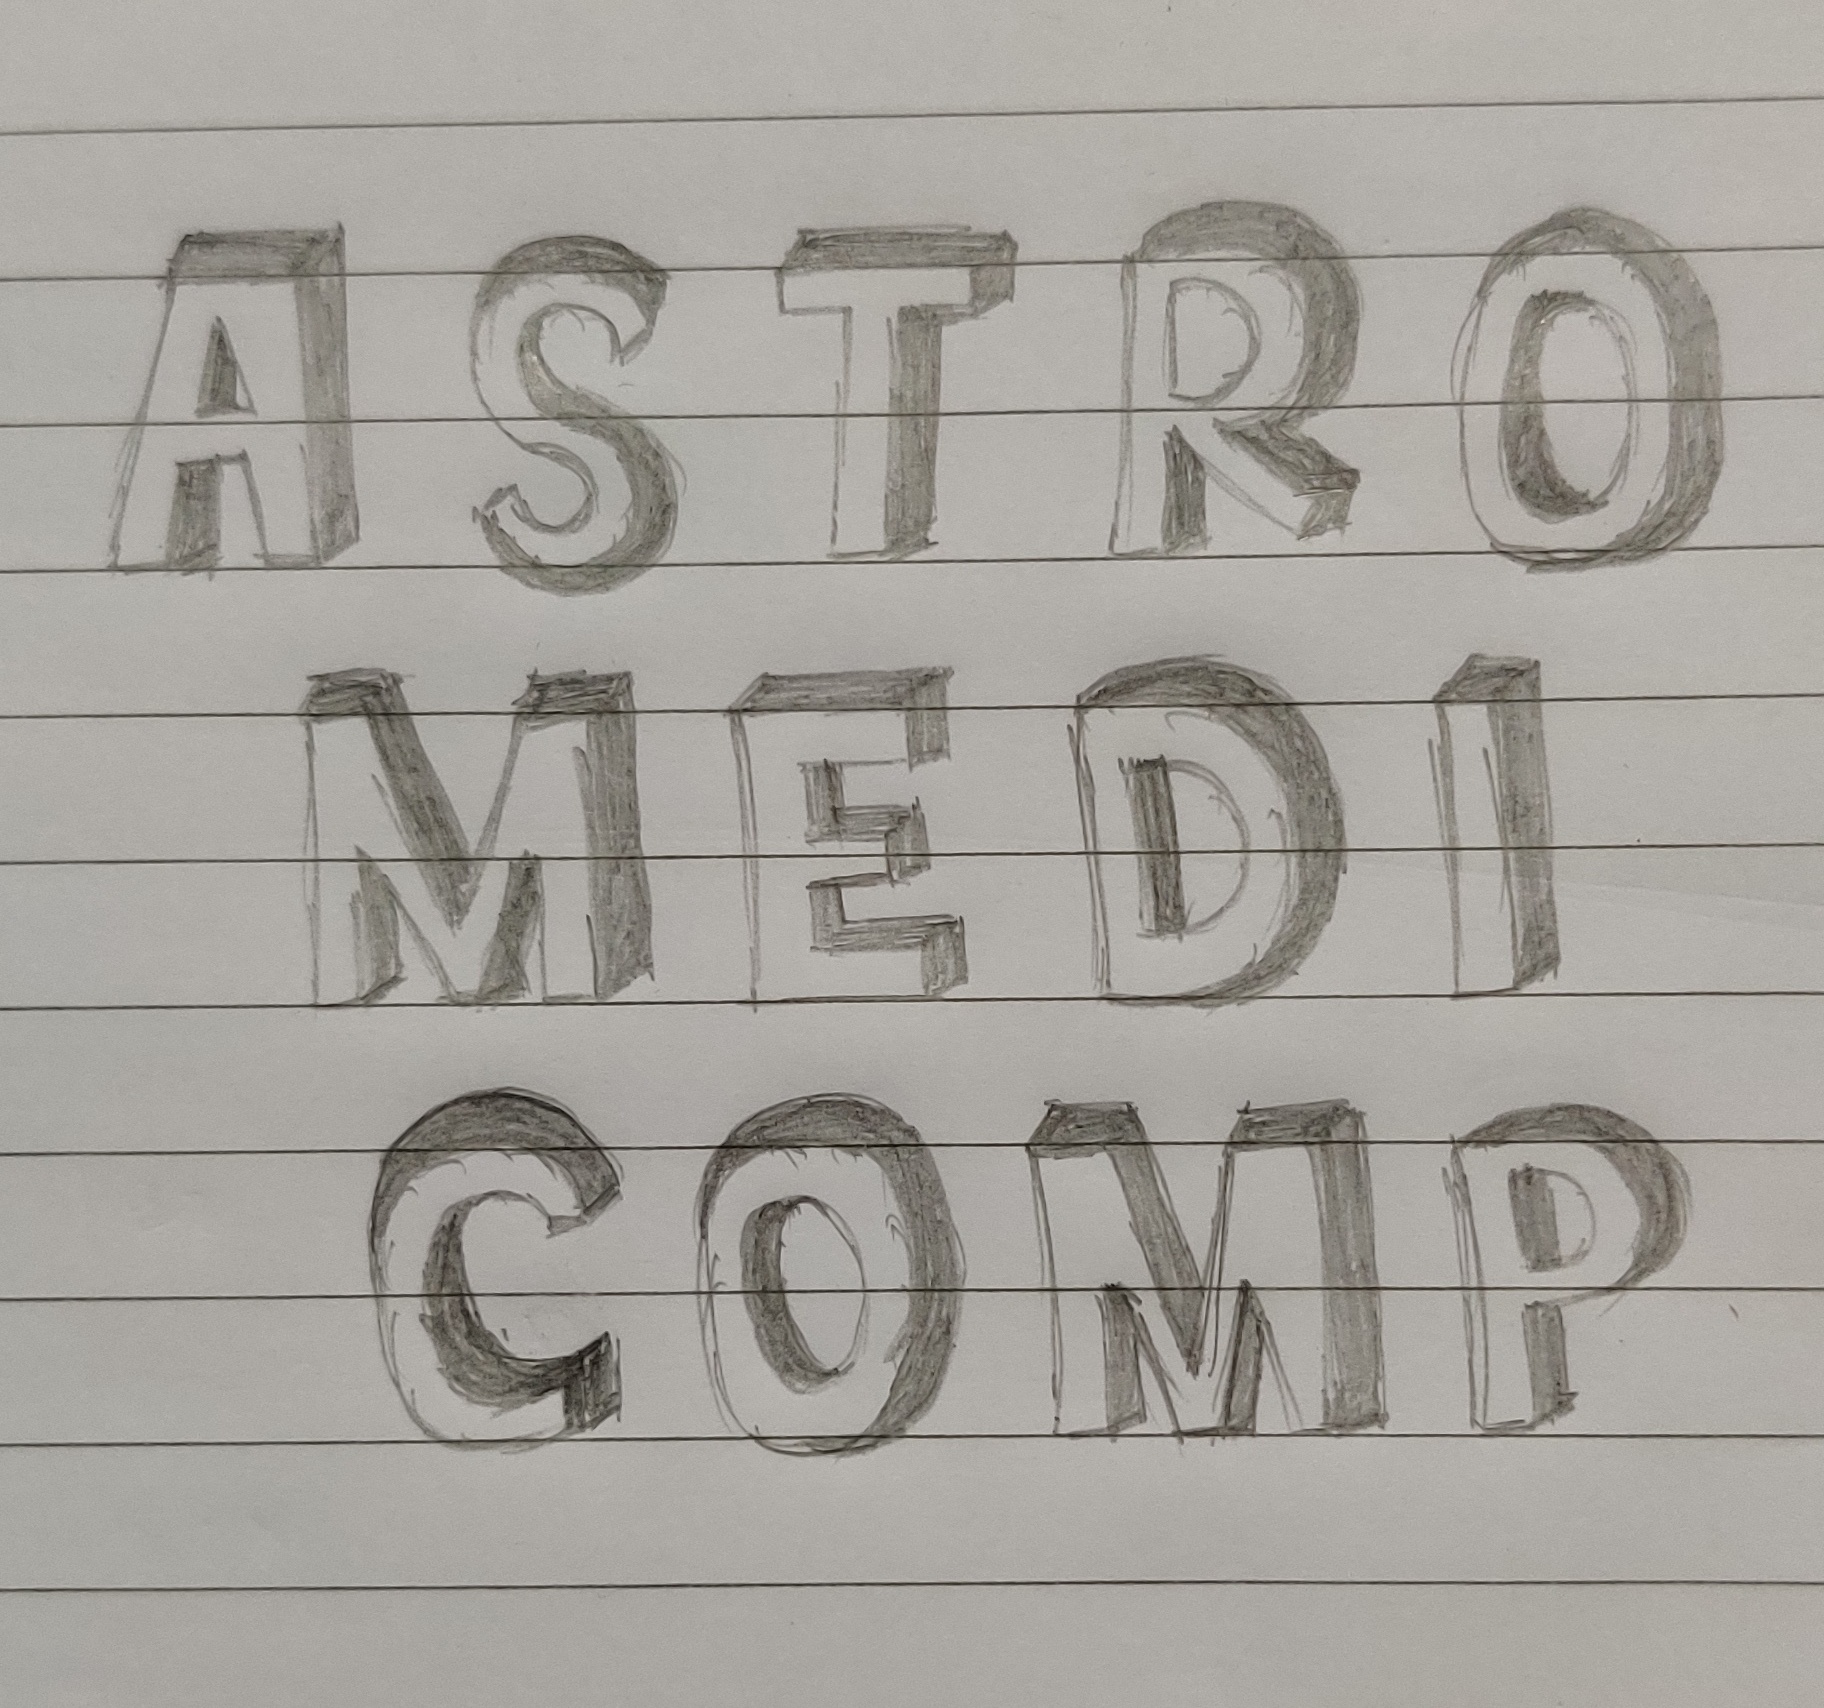 ASTRO
MEDI
COMP